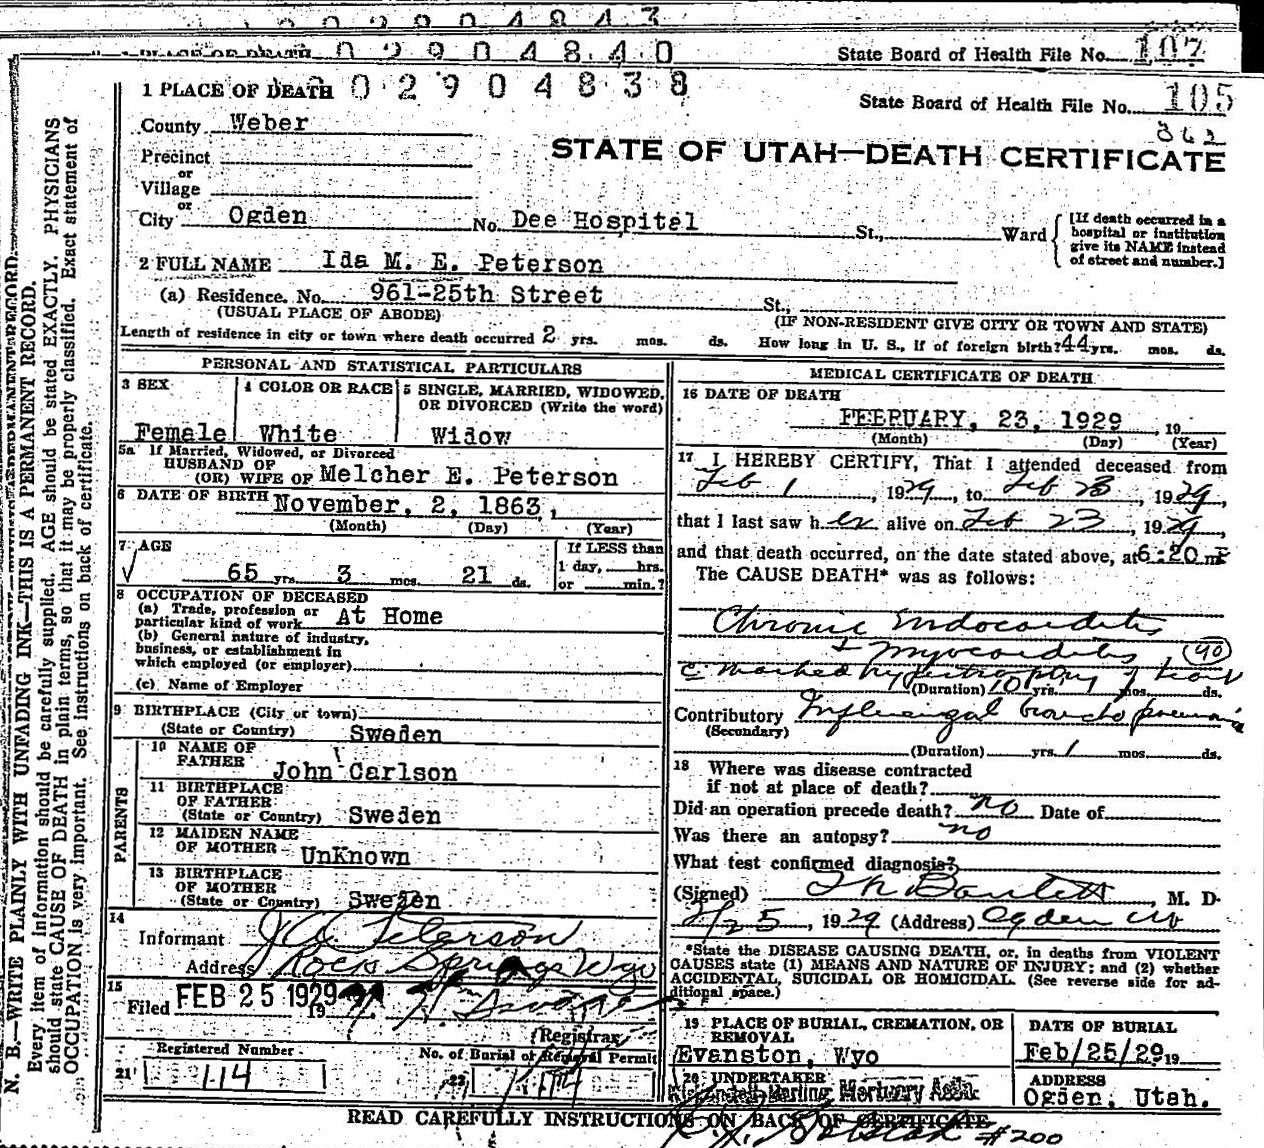 0 2 9 0 4 8 4 3
PLACE OF DEATH 0 2 9 0 4 8 4 0 State Board of Health File No. 107
1 PLACE OF DEATH 0 2 9 0 4 8 3 8 State Board of Health File No. 105
County Weber 362
STATE OF UTAH—DEATH CERTIFICATE
Precinct
or
Village
or
City Ogden No. Dee Hospital St., Ward
[If death occurred in a
hospital or institution
give its NAME instead
of street and number.]
2 FULL NAME Ida M. E. Peterson
(a) Residence. No. 961-25th Street St.,
(USUAL PLACE OF ABODE) (IF NON-RESIDENT GIVE CITY OR TOWN AND STATE)
Length of residence in city or town where death occurred 2 yrs. mos. ds. How long in U. S., if of foreign birth? 44 yrs. mos. ds.
PERSONAL AND STATISTICAL PARTICULARS
3 SEX
Female
4 COLOR OR RACE
White
5 SINGLE, MARRIED, WIDOWED,
OR DIVORCED (Write the word)
Widow
5a If Married, Widowed, or Divorced
HUSBAND OF
(OR) WIFE OF Melcher E. Peterson
6 DATE OF BIRTH November, 2, 1863,
(Month) (Day) (Year)
7 AGE
65 yrs. 3 mos. 21 ds.
If LESS than
1 day, hrs.
or min.?
8 OCCUPATION OF DECEASED
(a) Trade, profession or
particular kind of work At Home
(b) General nature of industry,
business, or establishment in
which employed (or employer)
(c) Name of Employer
9 BIRTHPLACE (City or town)
(State or Country) Sweden
PARENTS
10 NAME OF
FATHER John Carlson
11 BIRTHPLACE
OF FATHER
(State or Country) Sweden
12 MAIDEN NAME
OF MOTHER UnKnown
13 BIRTHPLACE
OF MOTHER
(State or Country) Sweden
14
Informant J A Peterson
Address Rock Springs Wyo
15
Filed FEB 25 1929 19
(Registrar)
Registered Number
21 114
No. of Burial or Removal Permit
22
MEDICAL CERTIFICATE OF DEATH
16 DATE OF DEATH
FEBRUARY, 23, 1929 , 19
(Month) (Day) (Year)
17 I HEREBY CERTIFY, That I attended deceased from
Feb 1 , 1929, to Feb 23, 1929,
that I last saw her alive on Feb 23, 1929,
and that death occurred, on the date stated above, at 6:20 m P
The CAUSE DEATH* was as follows:
Chronic Endocarditis
+ Myocarditis (90)
c marked hypertrophy of heart
(Duration) 10 yrs. mos. ds.
Contributory Influenzal broncho pneumonia
(Secondary)
(Duration) yrs. 1 mos. ds.
18 Where was disease contracted
if not at place of death?
Did an operation precede death? no Date of
Was there an autopsy? no
What test confirmed diagnosis?
(Signed) , M. D.
2/25, 1929 (Address) Ogden
*State the DISEASE CAUSING DEATH, or, in deaths from VIOLENT
CAUSES state (1) MEANS AND NATURE OF INJURY; and (2) whether
ACCIDENTAL, SUICIDAL OR HOMICIDAL. (See reverse side for ad-
ditional space.)
19 PLACE OF BURIAL, CREMATION, OR
REMOVAL
Evanston, Wyo
DATE OF BURIAL
Feb/25/29 19
20 UNDERTAKER
Mortuary Assn.
ADDRESS
Ogden, Utah.
READ CAREFULLY INSTRUCTIONS ON BACK OF CERTIFICATE
#200
N. B.—WRITE PLAINLY WITH UNFADING INK—THIS IS A PERMANENT RECORD.
Every item of information should be carefully supplied. AGE should be stated EXACTLY. PHYSICIANS
should state CAUSE OF DEATH in plain terms, so that it may be properly classified. Exact statement of
OCCUPATION is very important. See instructions on back of certificate.